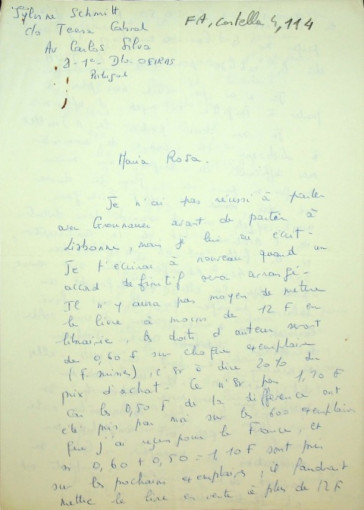 Sylvine Schmitt
c/o Teresa Cabral
Av Carlos Silva
2-1º Dto. OEIRAS
Portugal
FA, Cartella 4, 114
Maria Rosa.
Je n'ai pas réussi à parler
avec avant de partir à
Lisbonne, mais je lui ai écrit.
Je t'écrirai à nouveau quand un
accord définitif sera arrangé.
Il n'y aura pas moyen de mettre
le livre à moins de 12 F en
librairie, les droits d'auteur sont
de 0,60 F sur chaque exemplaire
c'est à dire 20% du
prix d'achat. Ce n'est pas 1,10 F
car les 0,50 F de la différence ont
été pris par moi sur les 600 exemplaires
que j'ai reçus pour la France, et
si 0,60 + 0,50 = 1.10 F sont pris
sur les prochains exemplaires, il faudrait
mettre le livre en vente à plus de 12 F